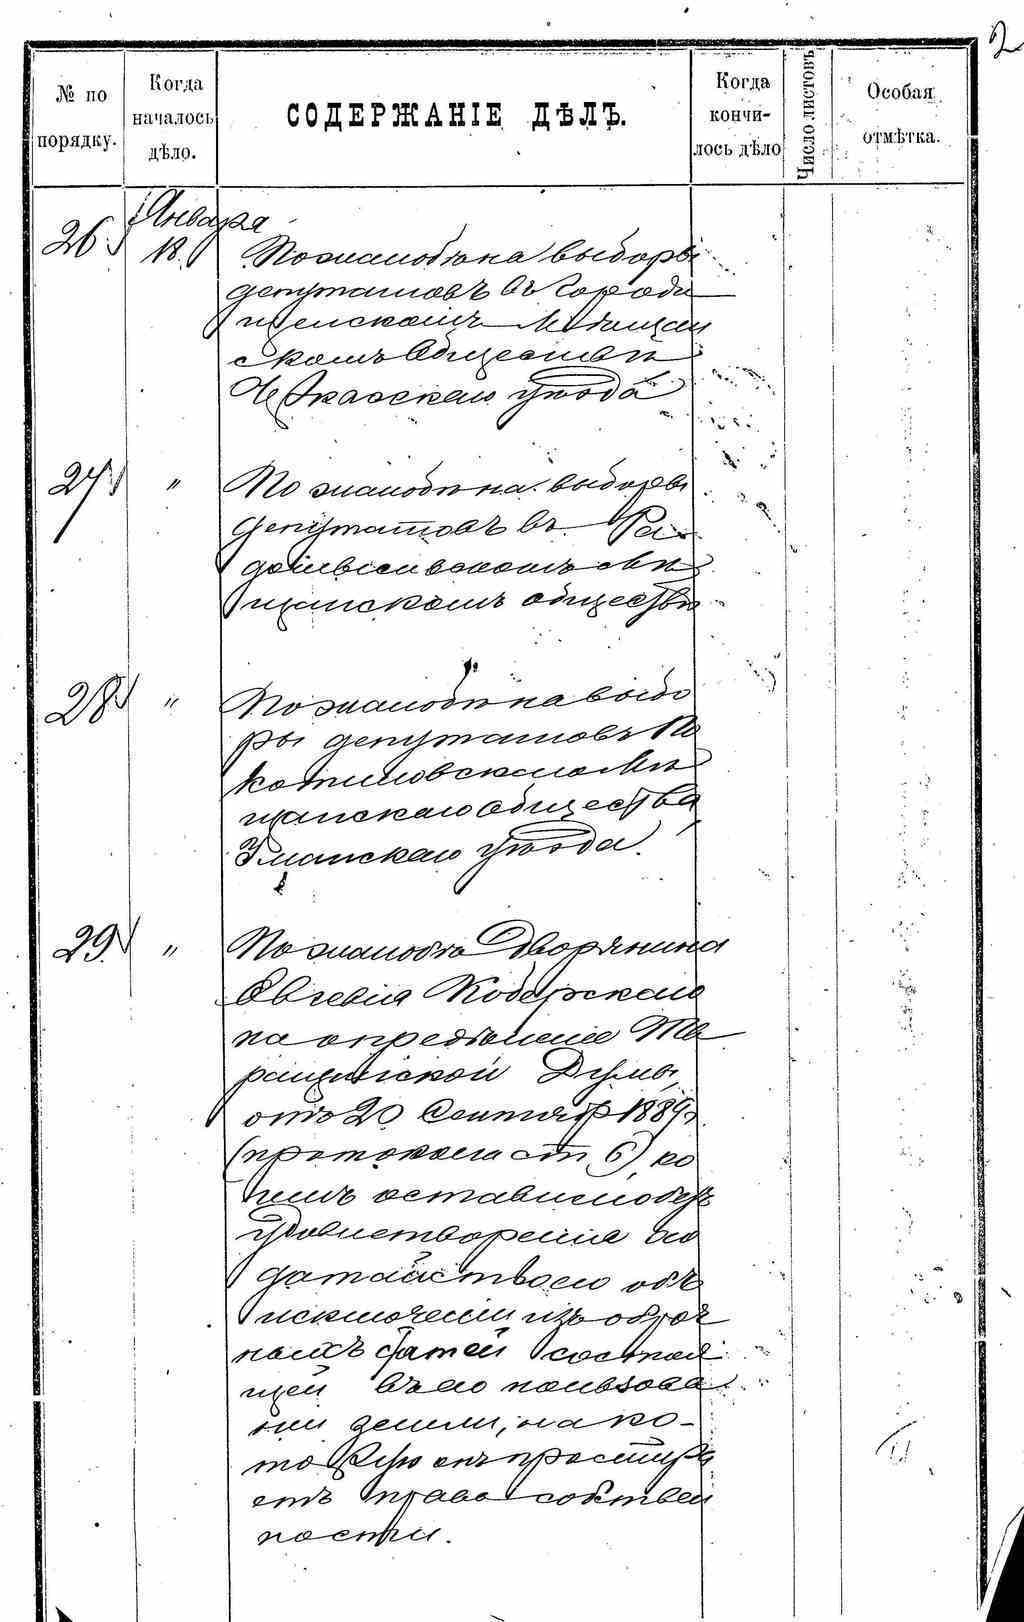 2
№ по порядку.
Когда началось дѣло.
СОДЕРЖАНІЕ ДѢЛЪ.
Когда кончи-лось дѣло
Число листовъ
Особая отмѣтка.
Января
26 18. По жалобѣ на выборы
депутатовъ въ Городи
щенскомъ Мѣщан
скомъ Обществѣ
Черкасскаго уѣзда
27 " По жалобѣ на выборы
депутатовъ въ Ра
домысльскомъ Мѣ
щанскомъ обществѣ
28 " По жалобѣ на выбо
ры депутатовъ По
котиловскаго Мѣ
щанскаго Общества,
Уманскаго уѣзда.
29. " По жалобѣ Дворянина
Евгенія Коберскаго
на опредѣленіе Та
ращанской Думы,
отъ 20 Сентября 1889 г.
(протокола ст. 6), ко
имъ оставлено безъ
удовлетворенія хо
датайство его объ
исключеніи изъ оброч
ныхъ статей состоя
щей въ его пользова
ніи земли, на ко-
торую онъ простира
етъ право собствен
ности.